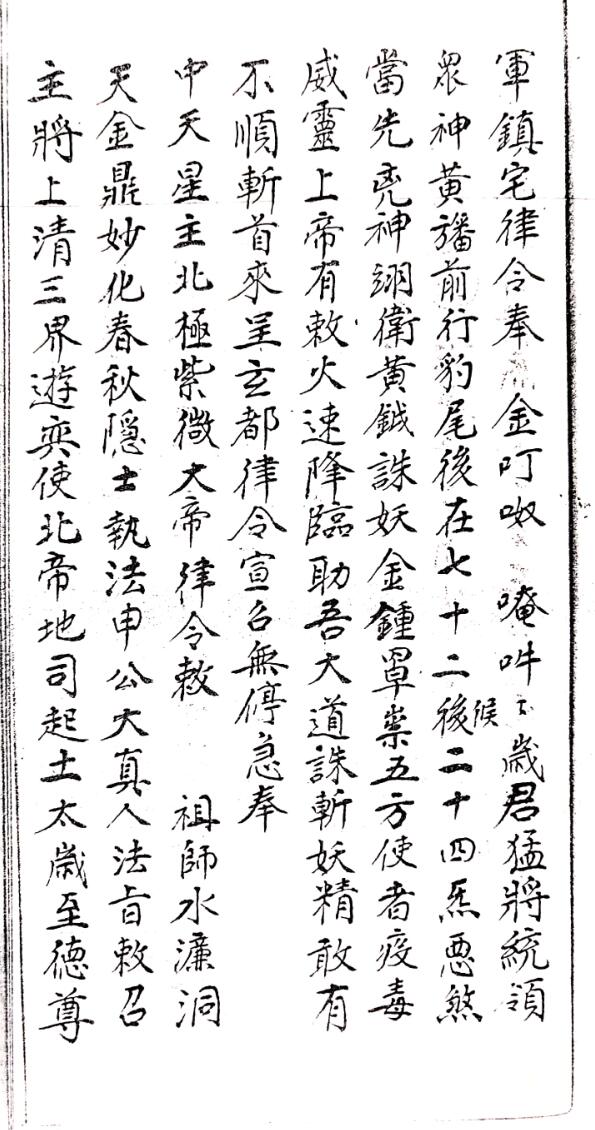 軍鎮宅律令奉 金叮呶 唵吽〻歲君猛將統領
眾神黃旛前行豹尾後在七十二後候二十四炁惡煞
當先兇神翊衛黃鉞誅妖金鍾罩祟五方使者疫毒
威靈上帝有敕火速降臨助吾大道誅斬妖精敢有
不順斬首來呈玄都律令宣召無停急奉
中天星主北極紫微大帝律令敕 祖師水濂洞
天金鼎妙化春秋隱士執法申公大真人法旨敕召
主將上清三界遊奕使北帝地司起土太歲至德尊